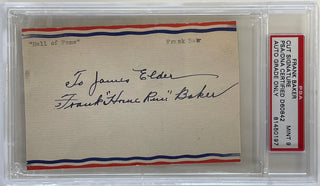 "Hall of Fame" Frank Baker
To James Elder
Frank "Home Run" Baker
PSA
FRANK BAKER
CUT SIGNATURE
PSA/DNA CERTIFIED D60842
AUTO GRADE ONLY
MINT 9
81460197